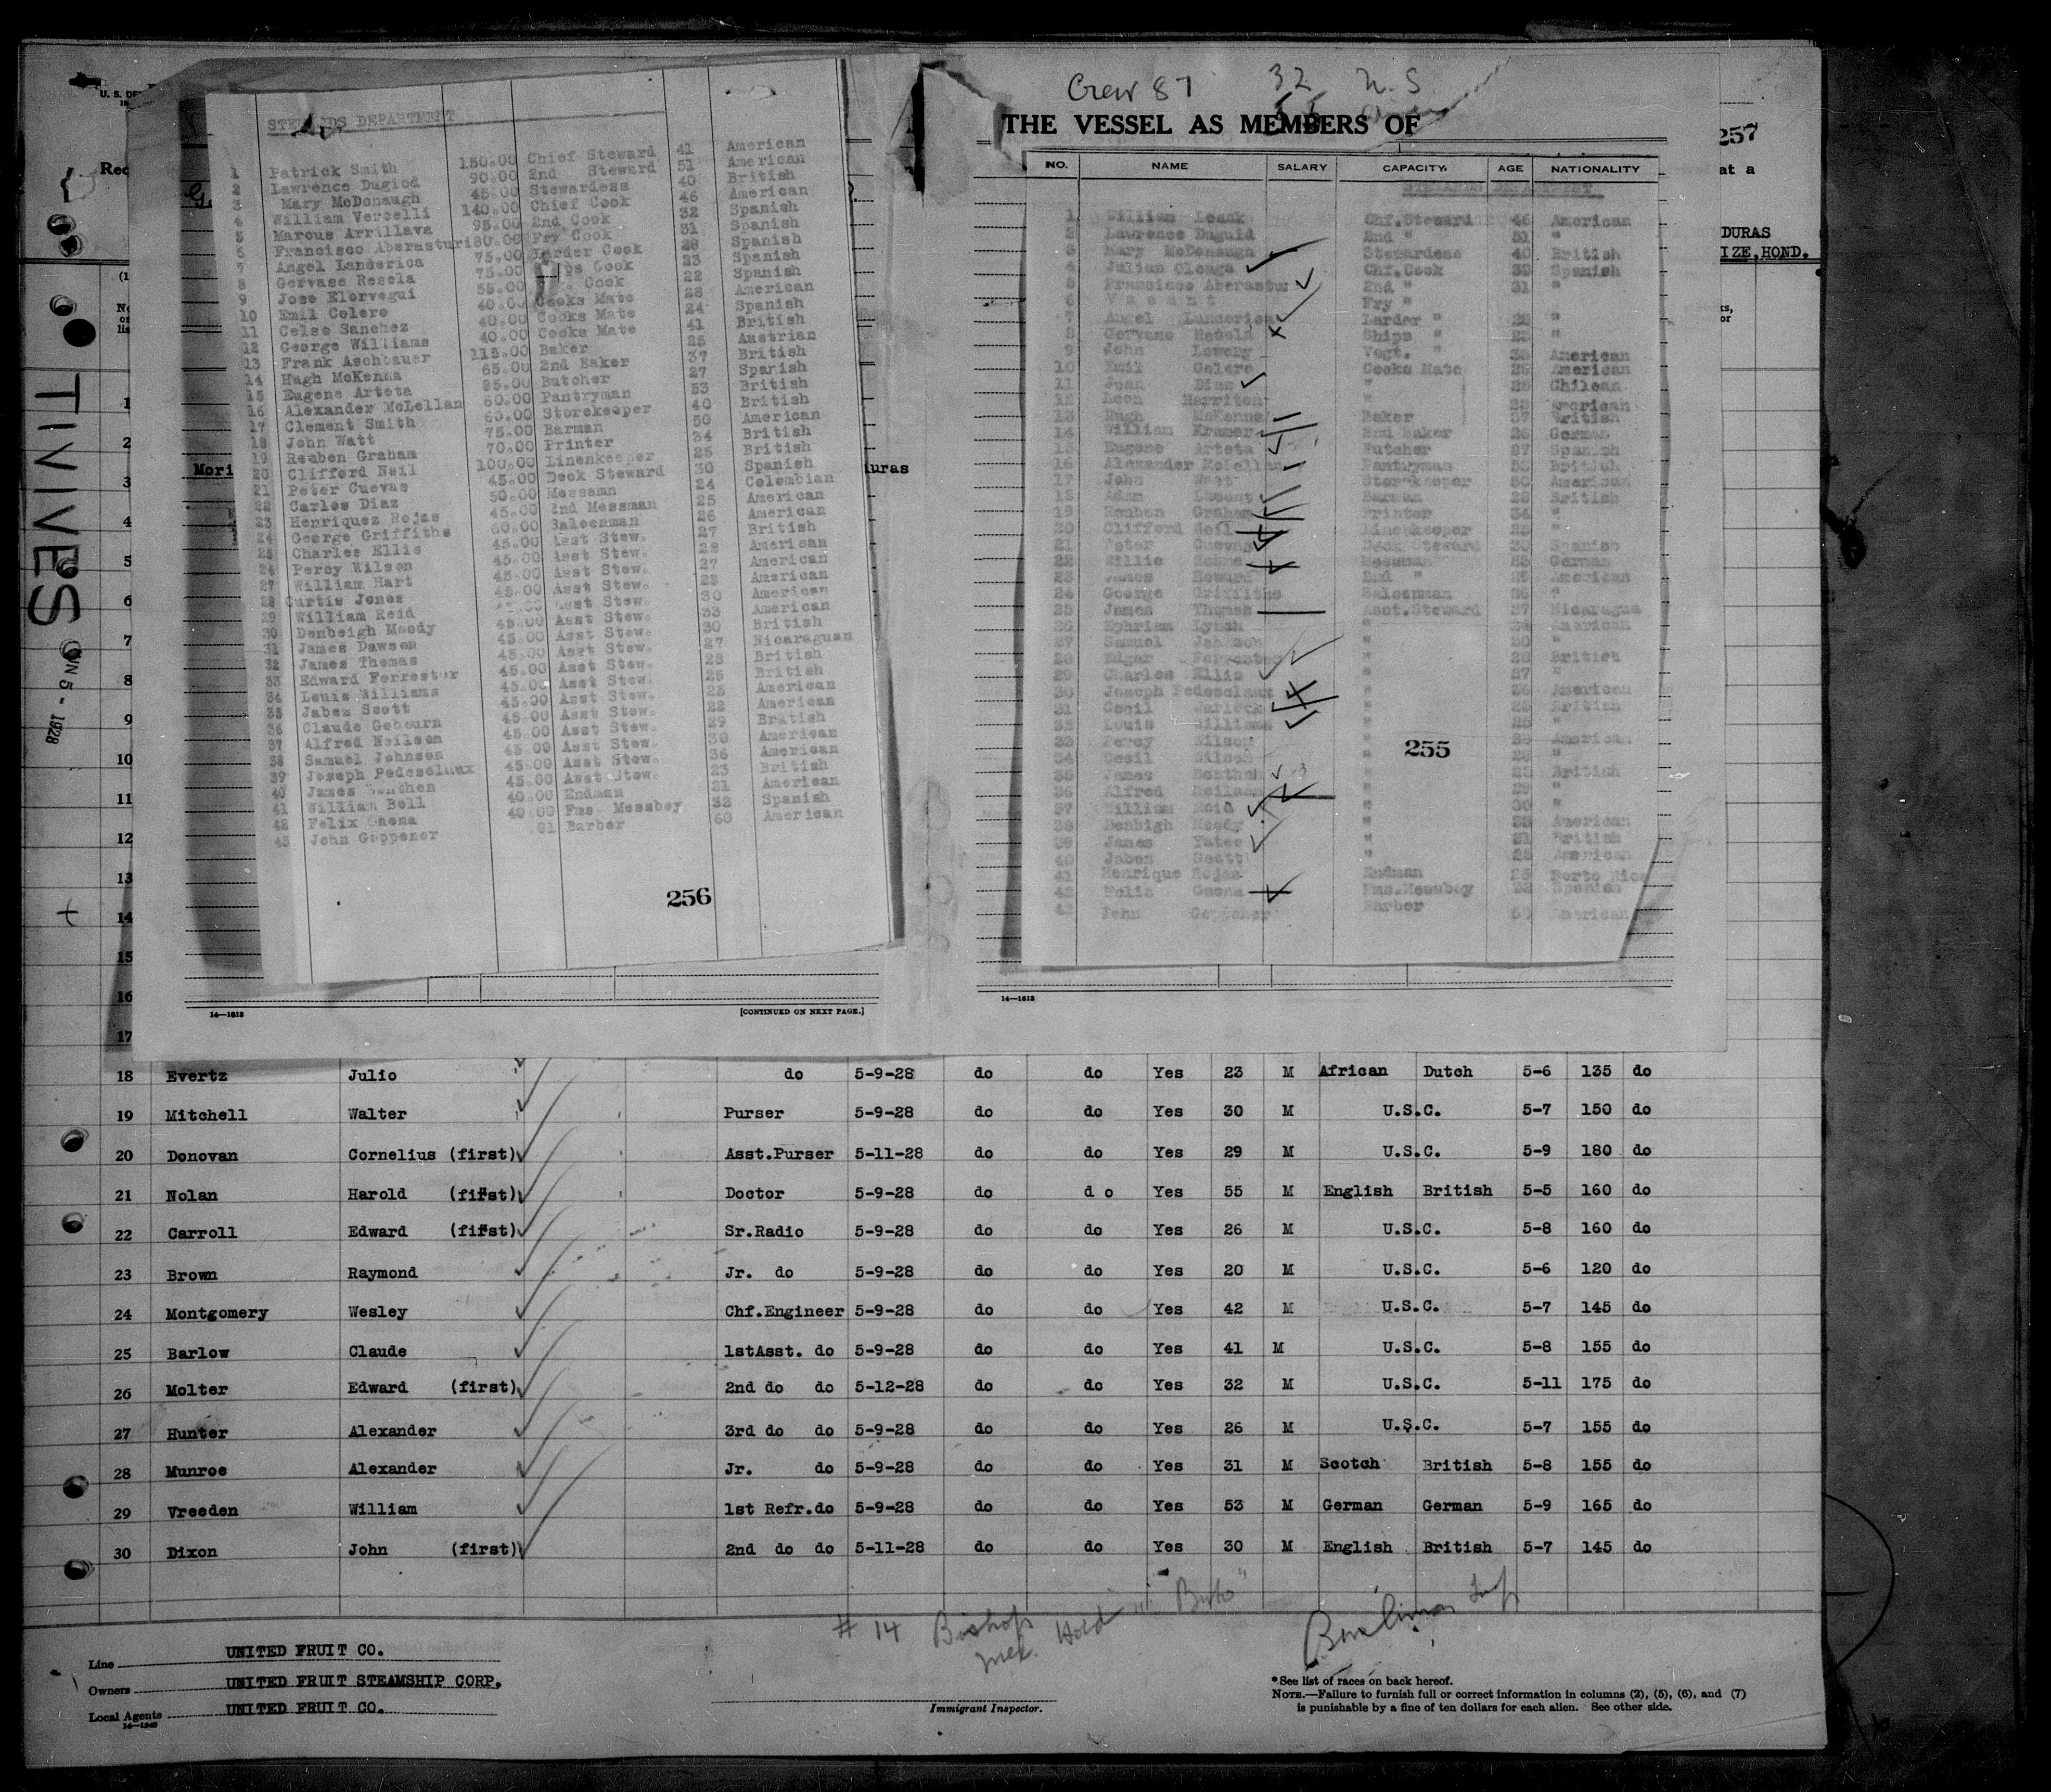 Crew 87 32 U.S.
THE VESSEL AS MEMBERS OF
257
at a
DURAS
IZE,HOND.
U. S. DE
Rec
TIVIVES
5 - 1928
Mori
uras
STEWARDS DEPARTMENT
1 Patrick Smith 150.00 Chief Steward 41 American
2 Lawrence Dugiod 90.00 2nd Steward 51 American
3 Mary McDonaugh 45.00 Stewardess 40 British
4 William Vercelli 140.00 Chief Cook 46 American
5 Marcus Arrillava 95.00 2nd Cook 32 Spanish
6 Francisco Aberasturi 80.00 Fry Cook 31 Spanish
7 Angel Landerica 75.00 Larder Cook 28 Spanish
8 Gervase Resela 75.00 Cook 23 Spanish
9 Jose Elorvegui 55.00 Cook 22 Spanish
10 Emil Colero 40.00 Cooks Mate 28 American
11 Celso Sanchez 40.00 Cooks Mate 24 Spanish
12 George Williams 40.00 Cooks Mate 41 British
13 Frank Aschbauer 115.00 Baker 25 Austrian
14 Hugh McKenna 65.00 2nd Baker 37 British
15 Eugene Arteta 85.00 Butcher 27 Spanish
16 Alexander McLellan 60.00 Pantryman 53 British
17 Clement Smith 60.00 Storekeeper 40 British
18 John Watt 75.00 Barman 50 American
19 Reuben Graham 70.00 Printer 34 British
20 Clifford Neil 100.00 Linenkeeper 25 British
21 Peter Cuevas 45.00 Deck Steward 30 Spanish
22 Carlos Diaz 50.00 Messamn 24 Colombian
23 Henriquez Rojas 45.00 2nd Messman 25 American
24 George Griffiths 60.00 Saloonman 26 American
25 Charles Ellis 45.00 Asst Stew. 27 British
26 Percy Wilson 45.00 Asst Stew. 28 American
27 William Hart 45.00 Asst Stew. 27 American
28 Curtis Jones 45.00 Asst Stew. 28 American
29 William Reid Asst Stew. 30 American
30 Denbeigh Moody 45.00 Asst Stew. 33 American
31 James Dawson 45.00 Asst Stew. 30 British
32 James Thomas 45.00 Asst Stew. 27 Nicaraguan
33 Edward Forrester 45.00 Asst Stew. 28 British
34 Louis Williams 45.00 Asst Stew. 25 British
35 Jabez Scott 45.00 Asst Stew. 28 American
36 Claude Gobourn 45.00 Asst Stew. 22 American
37 Alfred Neilson 45.00 Asst Stew. 29 British
38 Samuel Johnson 45.00 Asst Stew. 30 American
39 Joseph Pedeselaux 45.00 Asst Stew. 36 American
40 James 45.00 Asst Stew. 23 British
41 William Bell 40.00 Endman 21 American
42 Felix Gaona 40.00 Fms Messboy 32 Spanish
43 John Geppener 01 Barber 60 American
256
14—1613
[CONTINUED ON NEXT PAGE.]
NO. NAME SALARY CAPACITY AGE NATIONALITY
STEWARDS DEPARTMENT
1 William Chf.Steward 46 American
2 Lawrence Duguid 2nd " 51 "
3 Mary McDonaugh Stewardess 40 British
4 Julian Chf.Cook Spanish
5 Francisco Aberastur 2nd " 31 "
6 Vacant Fry "
7 Angel Landerica Larder " "
8 Gervase Ships " "
9 John Lowery Vegt. " American
10 Emil Colero Cooks Mate American
11 Juan Diaz " Chilean
12 Leon " American
13 Hugh McKenna Baker 37 British
14 William Kramer 2nd Baker German
15 Eugene Arteta Butcher 27 Spanish
16 Alexander McLellan Pantryman British
17 John Watt Storekeeper 50 American
18 Adam Barman British
19 Reuben Graham Printer 34 "
20 Clifford Neil Linenkeeper 25 "
21 Peter Cuevas Deck Steward 30 Spanish
22 Willie Messman German
23 James Howard 2nd " American
24 George Griffiths Saloonman 26 "
25 James Thomas Asst.Steward 27 Nicaragua
26 Ephriam Lynch " American
27 Samuel Johnson " 30 "
28 Edgar Forrester " 28 British
29 Charles Ellis " 27 "
30 Joseph Pedeselaux " 36 American
31 Cecil " British
32 Louis Williams " 25 "
33 Percy Wilson " American
34 Cecil Wilson " "
35 James " 23 British
36 Alfred Neilson " 29 "
37 William Reid " 30 "
38 Denbigh Moody " American
39 James Yates " British
40 Jabez Scott " American
41 Henrique Rojas Endman Porto Rico
42 Felix Gaona Fms.Messboy Spanish
43 John Geppener Barber American
255
14—1613
1
2
3
4
5
6
7
8
9
10
11
12
13
14
15
16
17
18 Evertz Julio do 5-9-28 do do Yes 23 M African Dutch 5-6 135 do
19 Mitchell Walter Purser 5-9-28 do do Yes 30 M U.S.C. 5-7 150 do
20 Donovan Cornelius (first) Asst.Purser 5-11-28 do do Yes 29 M U.S.C. 5-9 180 do
21 Nolan Harold (first) Doctor 5-9-28 do d o Yes 55 M English British 5-5 160 do
22 Carroll Edward (first) Sr.Radio 5-9-28 do do Yes 26 M U.S.C. 5-8 160 do
23 Brown Raymond Jr. do 5-9-28 do do Yes 20 M U.S.C. 5-6 120 do
24 Montgomery Wesley Chf.Engineer 5-9-28 do do Yes 42 M U.S.C. 5-7 145 do
25 Barlow Claude 1stAsst. do 5-9-28 do do Yes 41 M U.S.C. 5-8 155 do
26 Molter Edward (first) 2nd do do 5-12-28 do do Yes 32 M U.S.C. 5-11 175 do
27 Hunter Alexander 3rd do do 5-9-28 do do Yes 26 M U.S.C. 5-7 155 do
28 Munroe Alexander Jr. do 5-9-28 do do Yes 31 M Scotch British 5-8 155 do
29 Vreeden William 1st Refr.do 5-9-28 do do Yes 53 M German German 5-9 165 do
30 Dixon John (first) 2nd do do 5-11-28 do do Yes 30 M English British 5-7 145 do
# 14 Bishop Hold
Mex.
Line UNITED FRUIT CO.
Owners UNITED FRUIT STEAMSHIP CORP.
Local Agents UNITED FRUIT CO.
Immigrant Inspector.
*See list of races on back hereof.
NOTE.—Failure to furnish full or correct information in columns (2), (5), (6), and (7)
is punishable by a fine of ten dollars for each alien. See other side.